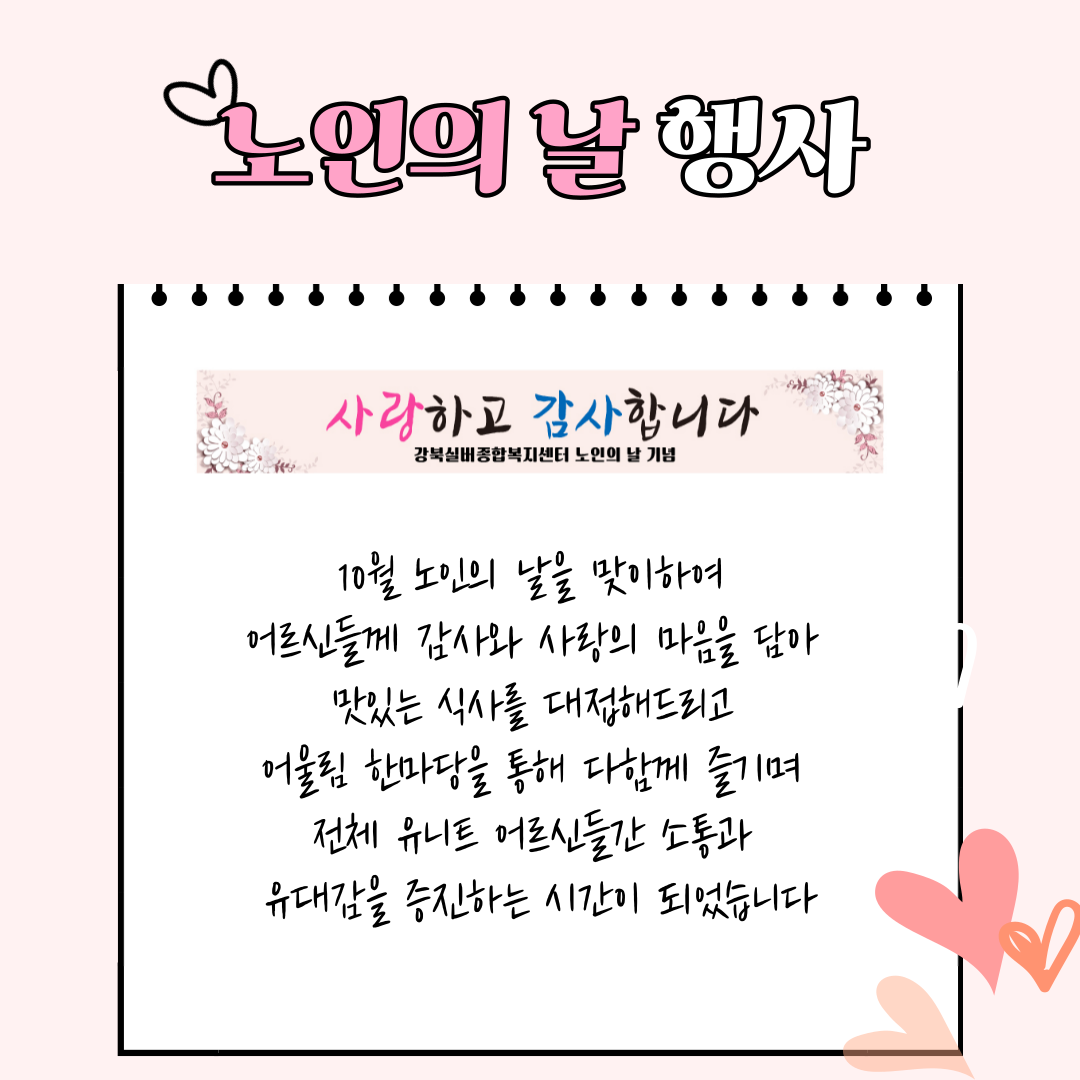 노인의 날 행사
사랑하고 감사합니다
강북실버종합복지센터 노인의 날 기념
10월 노인의 날을 맞이하여
어르신들께 감사와 사랑의 마음을 담아
맛있는 식사를 대접해드리고
어울림 한마당을 통해 다함께 즐기며
전체 유니트 어르신들간 소통과
유대감을 증진하는 시간이 되었습니다